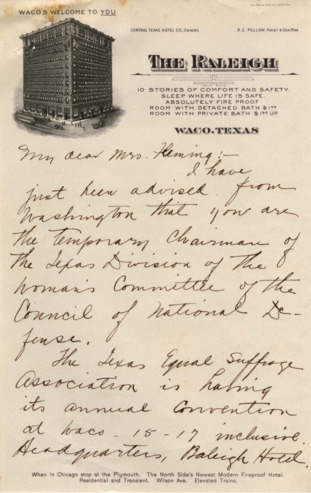 WACO'S WELCOME TO YOU
CENTRAL TEXAS HOTEL CO., OWNERS
R. E. PELLOW, PRES'T & GEN. MGR.
THE RALEIGH
10 STORIES OF COMFORT AND SAFETY
SLEEP WHERE LIFE IS SAFE
ABSOLUTELY FIRE PROOF
ROOM WITH DETACHED BATH $1.00
ROOM WITH PRIVATE BATH $1.50 UP
WACO, TEXAS
My dear Mrs. Fleming:-
I have
just been advised from
Washington that you are
the temporary Chairman of
the Texas Division of the
Woman's Committee of the
Council of National De-
fense.
The Texas Equal Suffrage
Association is having
its annual Convention
at Waco - 15 - 17 inclusive.
Headquarters, Raleigh Hotel.
When in Chicago stop at the Plymouth. The North Side's Newest Modern Fireproof Hotel.
Residential and Transient. Wilson Ave. Elevated Trains.